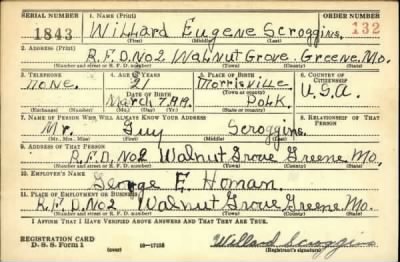 SERIAL NUMBER 1. NAME (Print) ORDER NUMBER
1843 Willard Eugene Scroggins 132
(First) (Middle) (Last)
2. ADDRESS (Print)
R.F.D. No2 Walnut Grove. Greene. Mo.
(Number and street or R. F. D. number) (Town) (County) (State)
3. TELEPHONE 4. AGE IN YEARS 5. PLACE OF BIRTH 6. COUNTRY OF CITIZENSHIP
None. 21 Morrisville U.S.A.
DATE OF BIRTH (Town or county)
March 7. Polk.
(Exchange) (Number) (Mo.) (Day) (Yr.) (State or country)
7. NAME OF PERSON WHO WILL ALWAYS KNOW YOUR ADDRESS 8. RELATIONSHIP OF THAT PERSON
Mr. Guy Scroggins.
(Mr., Mrs., Miss) (First) (Middle) (Last)
9. ADDRESS OF THAT PERSON
R.F.D. No2 Walnut Grove Greene Mo.
(Number and street or R. F. D. number) (Town) (County) (State)
10. EMPLOYER'S NAME
George E. Homan.
11. PLACE OF EMPLOYMENT OR BUSINESS
R.F.D. No2 Walnut Grove Greene. Mo.
(Number and street or R. F. D. number) (Town) (County) (State)
I AFFIRM THAT I HAVE VERIFIED ABOVE ANSWERS AND THAT THEY ARE TRUE.
REGISTRATION CARD
D. S. S. Form 1 (over) Willard Scroggins
(Registrant's signature)